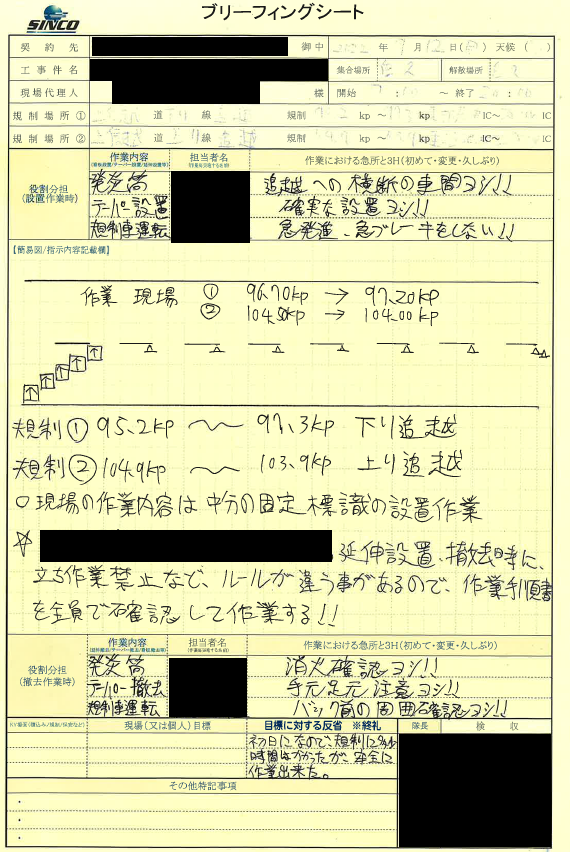 SINCO
ブリーフィングシート
契約先 御中 2022年7月12日( )天候( )
工事件名 集合場所 解散場所
現場代理人 様 開始 :00 ～ 終了 :00
規制場所① 道 下り 線 追越 規制 kp ～ kp IC～ IC
規制場所② 道 上り 線 追越 規制 kp ～ kp IC～ IC
役割分担
(設置作業時)
作業内容 担当者名 作業における急所と3H(初めて・変更・久しぶり)
発炎筒 追越への横断の車間ヨシ!!
テーパー設置 確実な設置ヨシ!!
規制車運転 急発進、急ブレーキをしない!!
【簡易図/指示内容記載欄】
作業現場 ① 96.70kp → 97.20kp
② 104.50kp → 104.00kp
規制① 95.2kp ～ 97.3kp 下り追越
規制② 104.9kp ～ 103.9kp 上り追越
○現場の作業内容は中分の固定標識の設置作業
☆ 延伸設置、撤去時に、
立ち作業禁止など、ルールが違う事があるので、作業手順書
を全員で確認して作業する!!
役割分担
(撤去作業時)
作業内容 担当者名 作業における急所と3H(初めて・変更・久しぶり)
発炎筒 消火確認ヨシ!!
テーパー撤去 手元足元注意ヨシ!!
規制車運転 バック前の周囲確認ヨシ!!
現場(又は個人)目標 目標に対する反省 ※終礼 隊長 検収
初日になので、規制に少々
時間はかかったが、安全に
作業出来た。
その他特記事項
・
・
・